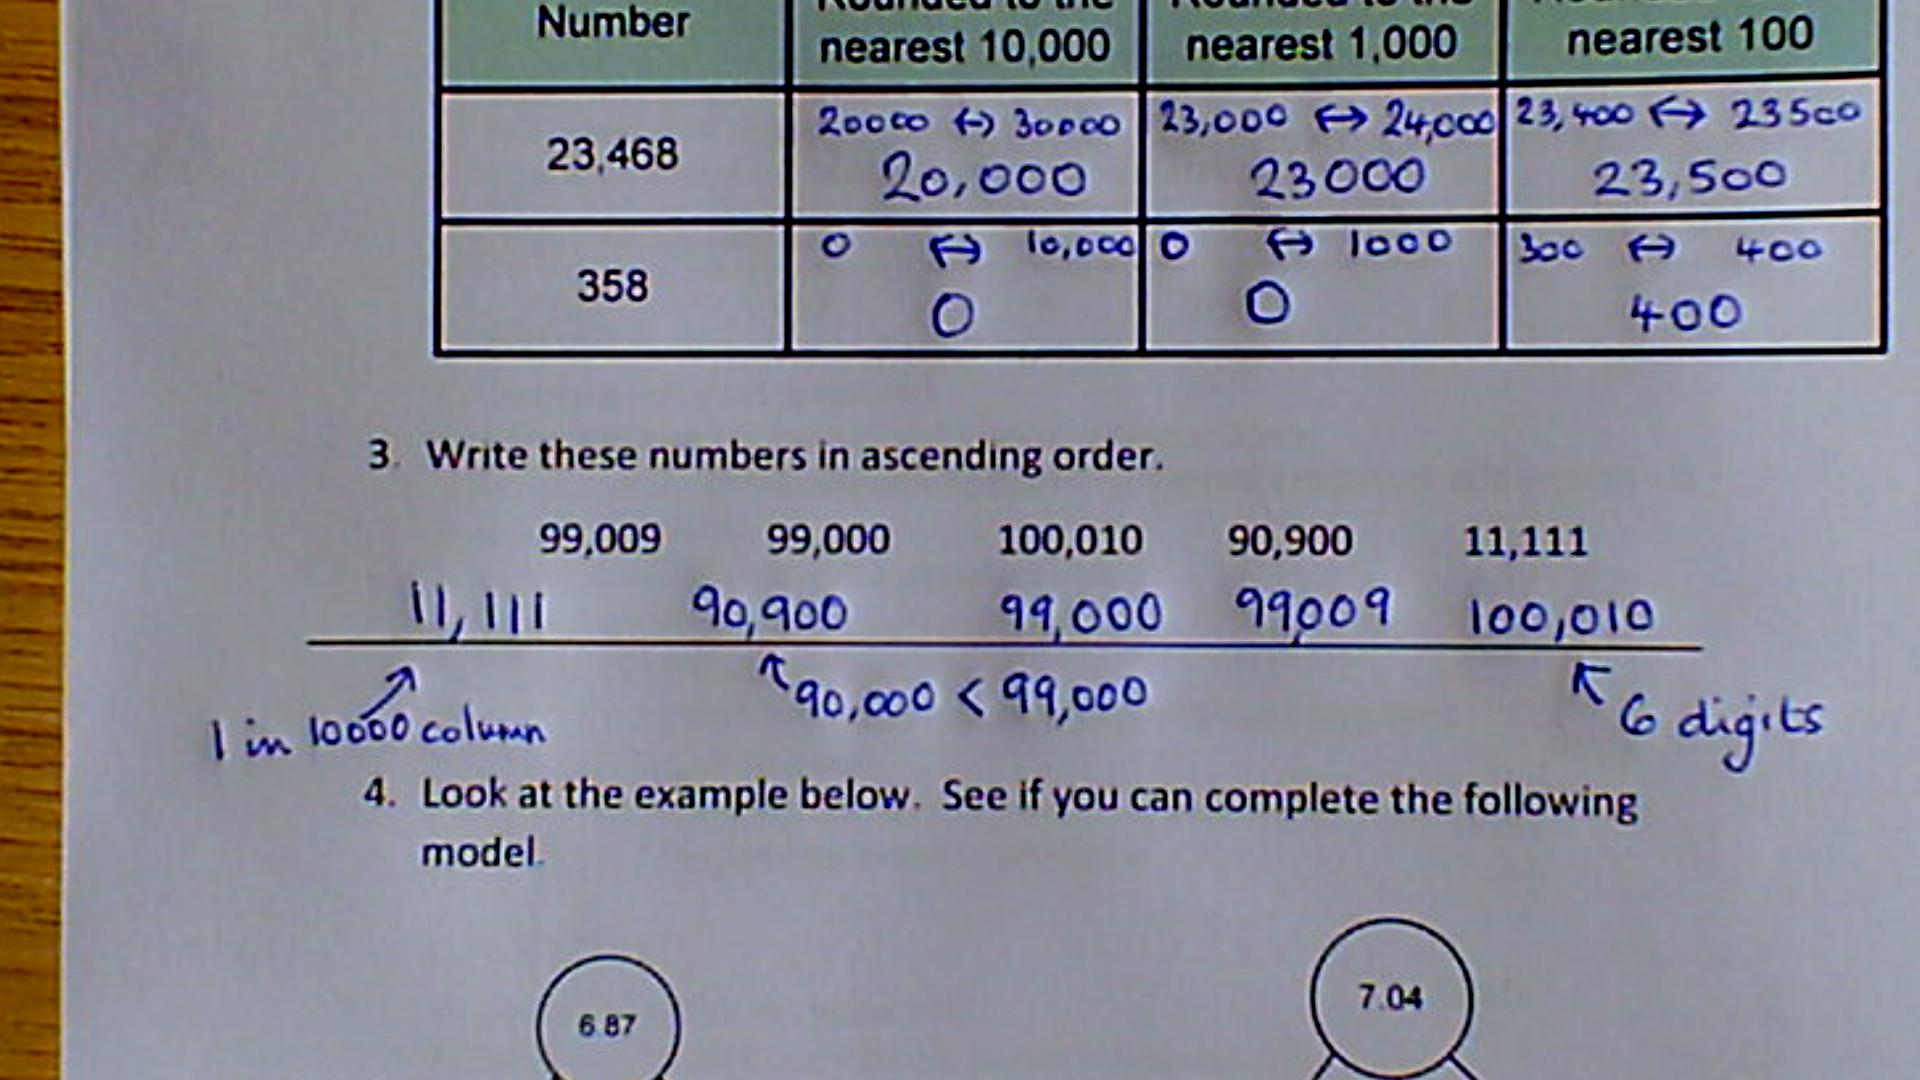 Number
Rounded to the
nearest 10,000
Rounded to the
nearest 1,000
nearest 100
23,468
20000 ↔ 30000
20,000
23,000 ↔ 24,000
23000
23,400 ↔ 23500
23,500
358
0 ↔ 10,000
0
0 ↔ 1000
0
300 ↔ 400
400
3. Write these numbers in ascending order.
99,009 99,000 100,010 90,900 11,111
11,111 90,900 99,000 99,009 100,010
1 in 10000 column
90,000 < 99,000
6 digits
4. Look at the example below. See if you can complete the following
model.
6.87
7.04